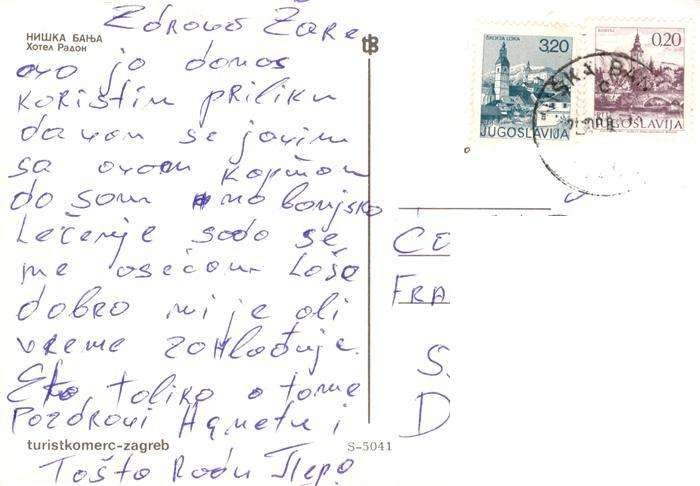 НИШКА БАЊА
Хотел Радон
Zdravo Žare
ovo ja danas
koristim priliku
da vam se javim
sa ovom
do sam na banjsko
Lečenje sada se
ne osećam Loše
dobro mi je ali
vreme zahlađuje
Eto toliko o tome
Pozdravi Agnetu i
Tošta Rodu Пера
turistkomerc-zagreb
S-5041
ŠKOFJA LOKA
3,20
JUGOSLAVIJA
0,20
JUGOSLAVIJA
FRA
S.
D